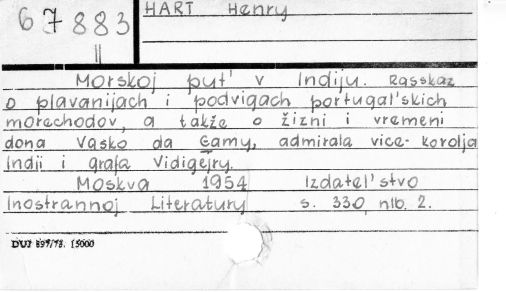 67883
HART Henry
Morskoj put' v Indiju. Rasskaz
o plavanijach i podvigach portugal'skich
morechodov, a takže o žizni i vremeni
dona Vasko da Gamy, admirala vice-korolja
Indji i grafa Vidigejry.
Moskva 1954 Izdatel'stvo
Inostrannoj Literatury s. 330, nlb. 2.
DUJ 897/73. 15000